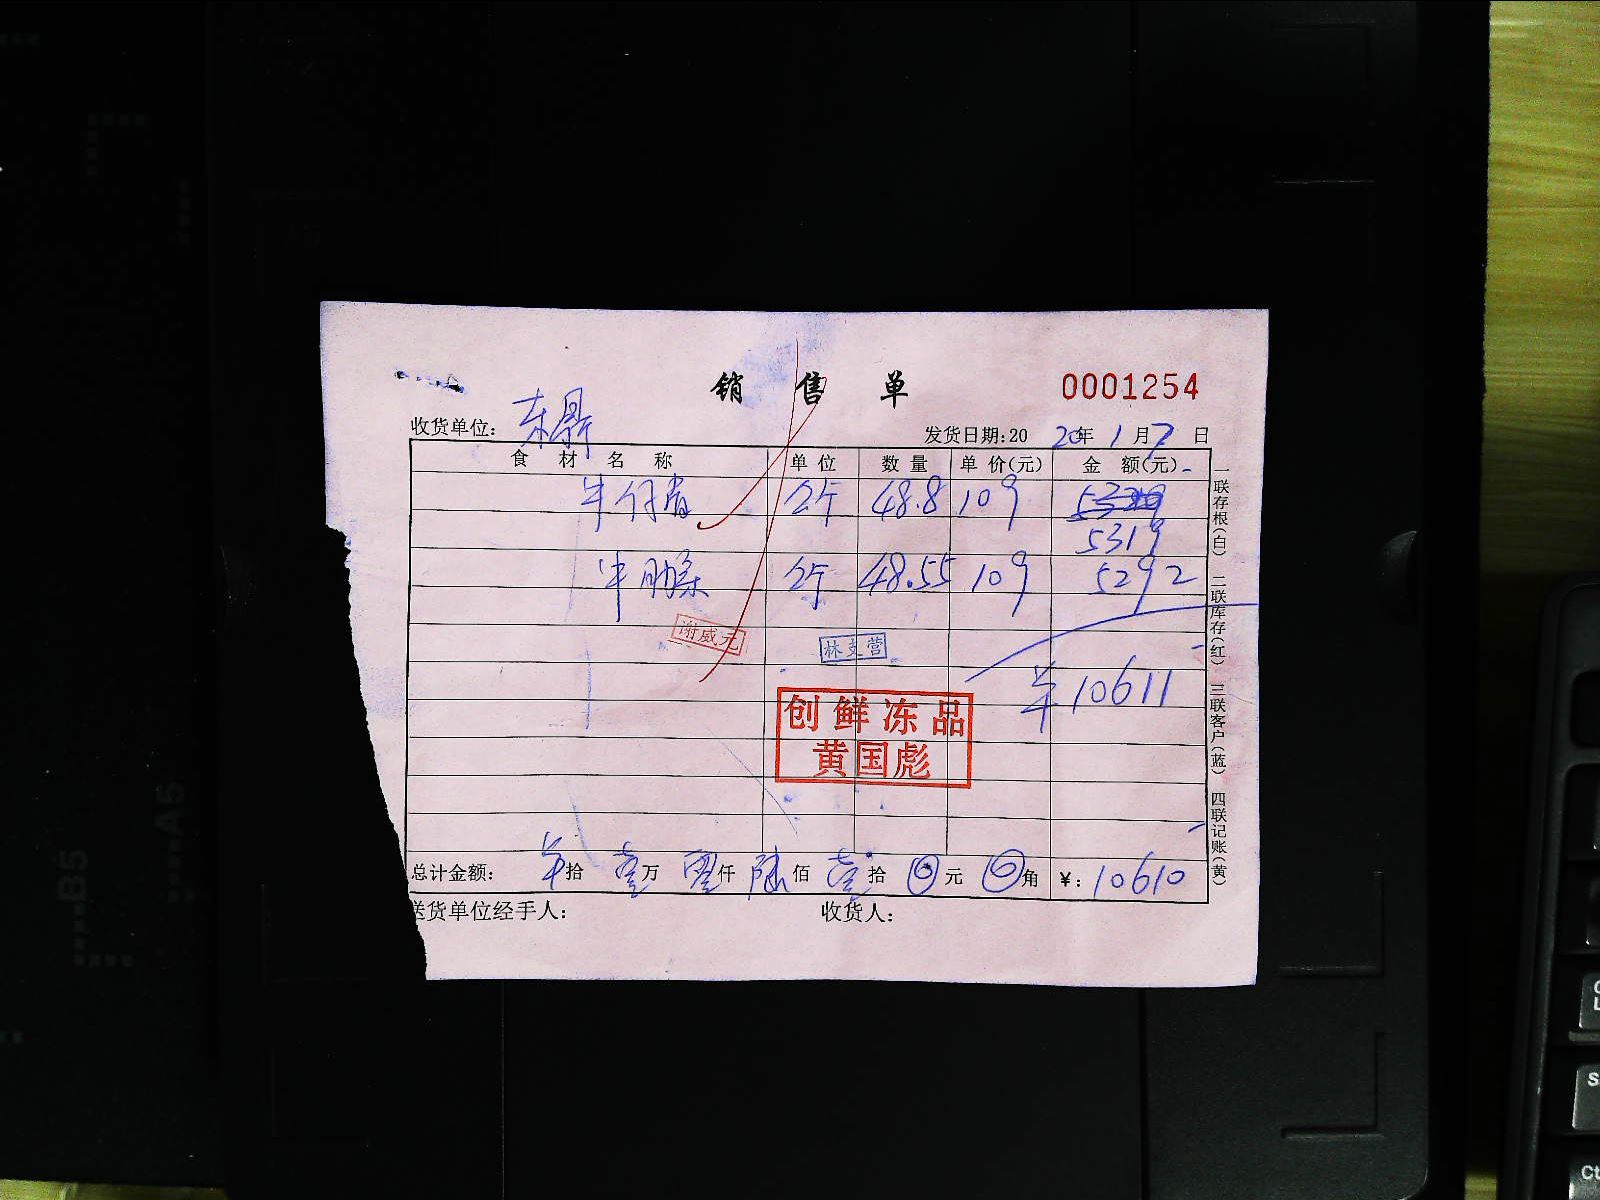 销售单
0001254
收货单位: 东鼎
发货日期:2020年1月7日
食材名称 单位 数量 单价(元) 金额(元)
牛仔骨 公斤 48.8 109
5319
牛肋条 公斤 48.55 109 5292
谢威元 林支营
¥10611
创鲜冻品
黄国彪
总计金额: 拾 壹万 零仟 陆佰 壹拾 0元 0角 ¥: 10610
送货单位经手人: 收货人:
一联存根(白) 二联库存(红) 三联客户(蓝) 四联记账(黄)
B5
A5